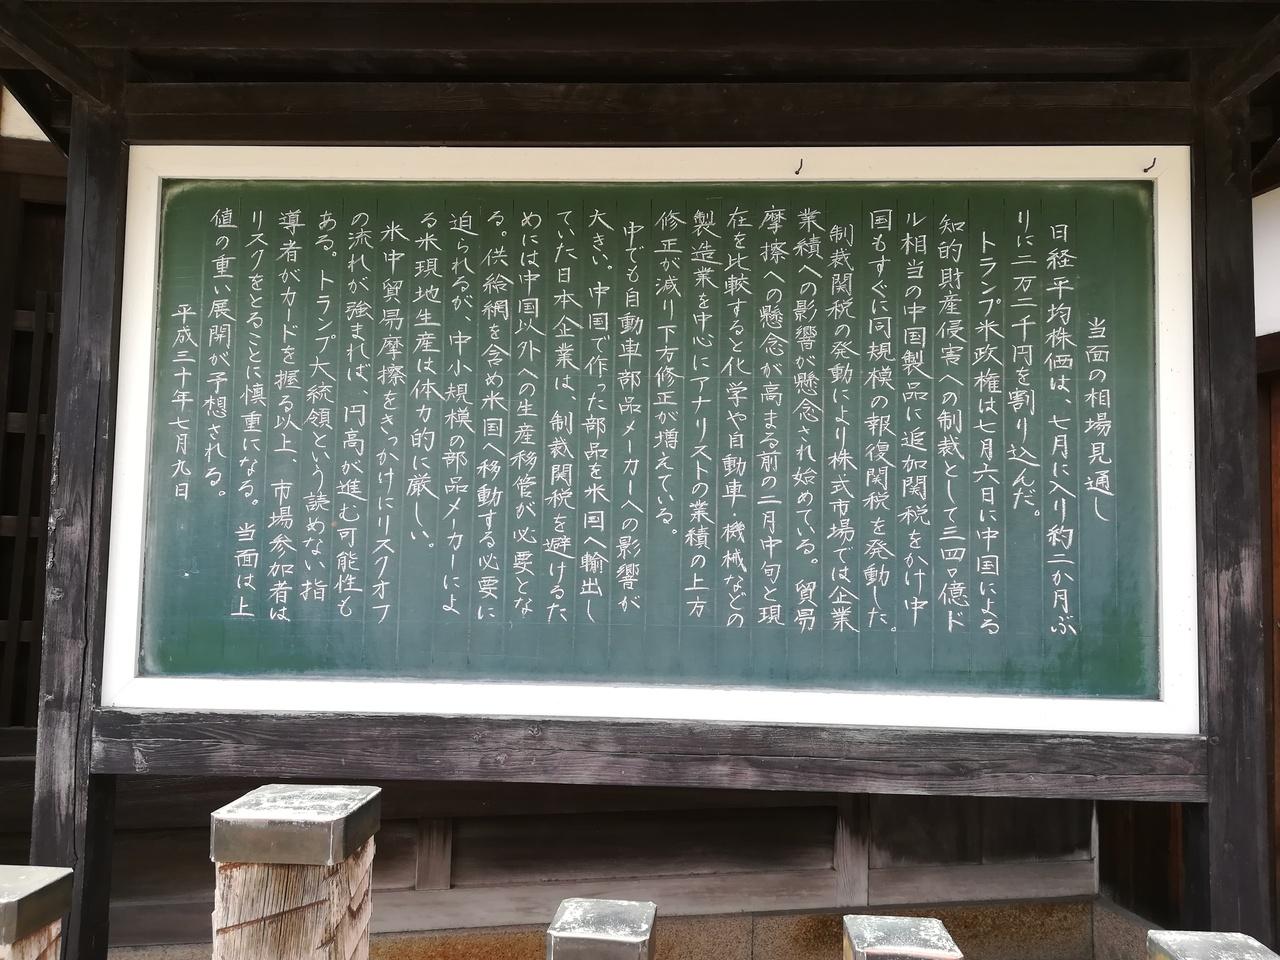 当面の相場見通し
日経平均株価は、七月に入り約二か月ぶ
りに二万二千円を割り込んだ。
トランプ米政権は七月六日に中国による
知的財産侵害への制裁として三四〇億ド
ル相当の中国製品に追加関税をかけ中
国もすぐに同規模の報復関税を発動した。
制裁関税の発動により株式市場では企業
業績への影響が懸念され始めている。貿易
摩擦への懸念が高まる前の二月中旬と現
在を比較すると化学や自動車・機械などの
製造業を中心にアナリストの業績の上方
修正が減り下方修正が増えている。
中でも自動車部品メーカーへの影響が
大きい。中国で作った部品を米国へ輸出し
ていた日本企業は、制裁関税を避けるた
めには中国以外への生産移管が必要とな
る。供給網を含め米国へ移動する必要に
迫られるが、中小規模の部品メーカーによ
る米現地生産は体力的に厳しい。
米中貿易摩擦をきっかけにリスクオフ
の流れが強まれば、円高が進む可能性も
ある。トランプ大統領という読めない指
導者がカードを握る以上、市場参加者は
リスクをとることに慎重になる。当面は上
値の重い展開が予想される。
平成三十年七月九日